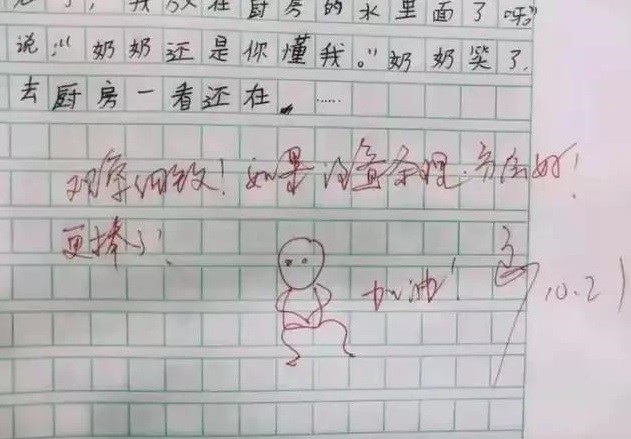 我放在厨房的水里面了呀”
说：“奶奶还是你懂我。”奶奶笑了，
去厨房一看还在。……
观察细致！如果注意条理，书写好！
更棒了！
加油！
10.21